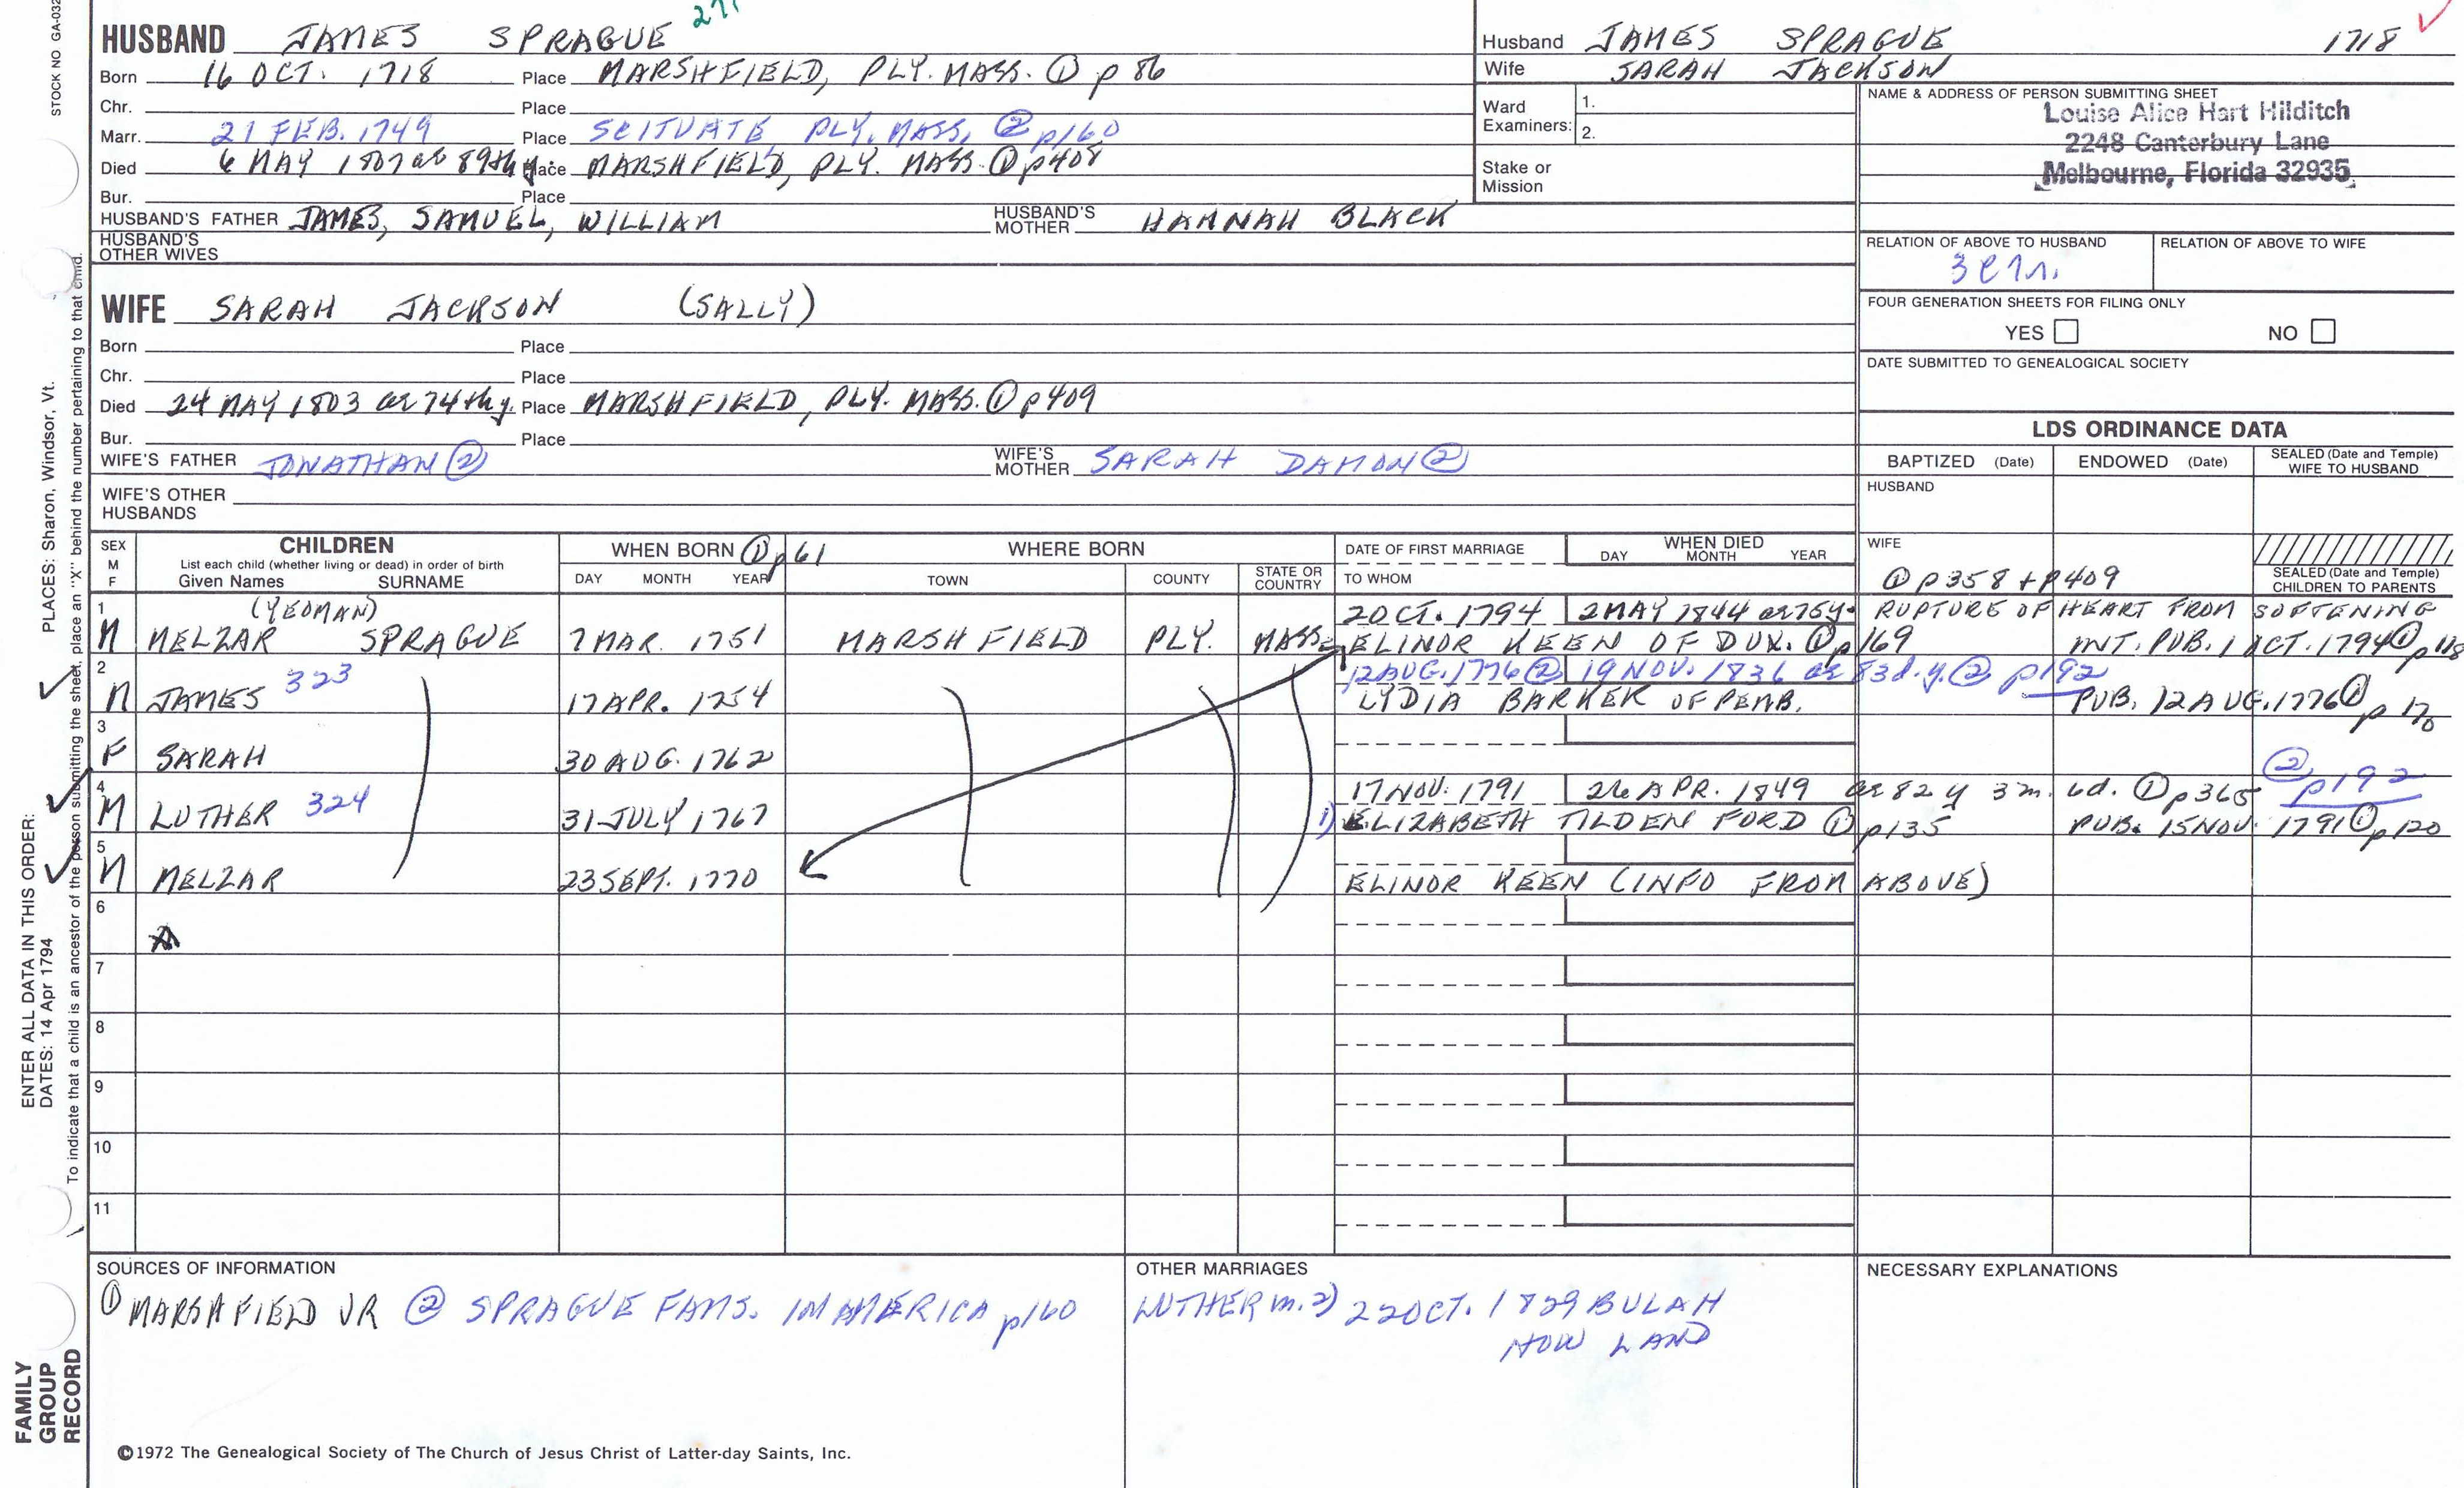 STOCK NO GA-032
HUSBAND JAMES SPRAGUE
Born 16 OCT. 1718 Place MARSHFIELD, PLY. MASS. ① p 86
Chr. Place
Marr. 21 FEB. 1749 Place SCITUATE, PLY. MASS, ② p160
Died 6 MAY 1807 ae 89th y. Place MARSHFIELD, PLY. MASS. ① p408
Bur. Place
HUSBAND'S FATHER JAMES, SAMUEL, WILLIAM HUSBAND'S MOTHER HANNAH BLACK
HUSBAND'S OTHER WIVES
WIFE SARAH JACKSON (SALLY)
Born Place
Chr. Place
Died 24 MAY 1803 ae 74th y. Place MARSHFIELD, PLY. MASS. ① p409
Bur. Place
WIFE'S FATHER JONATHAN ② WIFE'S MOTHER SARAH DAMON ②
WIFE'S OTHER HUSBANDS
Husband JAMES SPRAGUE 1718
Wife SARAH JACKSON
Ward Examiners: 1.
2.
Stake or Mission
NAME & ADDRESS OF PERSON SUBMITTING SHEET
Louise Alice Hart Hilditch
2248 Canterbury Lane
Melbourne, Florida 32935
RELATION OF ABOVE TO HUSBAND RELATION OF ABOVE TO WIFE
FOUR GENERATION SHEETS FOR FILING ONLY
YES NO
DATE SUBMITTED TO GENEALOGICAL SOCIETY
LDS ORDINANCE DATA
BAPTIZED (Date) ENDOWED (Date) SEALED (Date and Temple) WIFE TO HUSBAND
HUSBAND
WIFE
① p358 + p409
SEALED (Date and Temple) CHILDREN TO PARENTS
SEX M F CHILDREN
List each child (whether living or dead) in order of birth
Given Names SURNAME
WHEN BORN ① p 61
DAY MONTH YEAR
WHERE BORN
TOWN COUNTY STATE OR COUNTRY
DATE OF FIRST MARRIAGE
TO WHOM
WHEN DIED
DAY MONTH YEAR
1 (YEOMAN) 2 OCT. 1794 2 MAY 1844 ae 75y. RUPTURE OF HEART FROM SOFTENING
M MELZAR SPRAGUE 7 MAR. 1751 MARSHFIELD PLY. MASS. ELINOR KEEN OF DUX. ① p169 INT. PUB. 1 OCT. 1794 ① p118
2 12 AUG. 1776 ② 19 NOV. 1836 ae 83d. y. ② p192
M JAMES 323 17 APR. 1754 LYDIA BARKER OF PEMB. PUB. 12 AUG. 1776 ①
3
F SARAH 30 AUG. 1762
4 17 NOV. 1791 26 APR. 1849 ae 82 y 3 m. 6d. ① p365 ② p192
M LUTHER 324 31 JULY 1767 1) ELIZABETH TILDEN FORD ① p135 PUB. 15 NOV. 1791 ① p120
5
M MELZAR 23 SEPT. 1770 ELINOR KEEN (INFO FROM ABOVE)
6
7
8
9
10
11
SOURCES OF INFORMATION
① MARSHFIELD VR ② SPRAGUE FAMS. IN AMERICA p160
OTHER MARRIAGES
LUTHER m. 2) 22 OCT. 1829 BULAH
HOWLAND
NECESSARY EXPLANATIONS
©1972 The Genealogical Society of The Church of Jesus Christ of Latter-day Saints, Inc.
FAMILY GROUP RECORD
ENTER ALL DATA IN THIS ORDER:
DATES: 14 Apr 1794
PLACES: Sharon, Windsor, Vt.
To indicate that a child is an ancestor of the person submitting the sheet, place an "X" behind the number pertaining to that child.